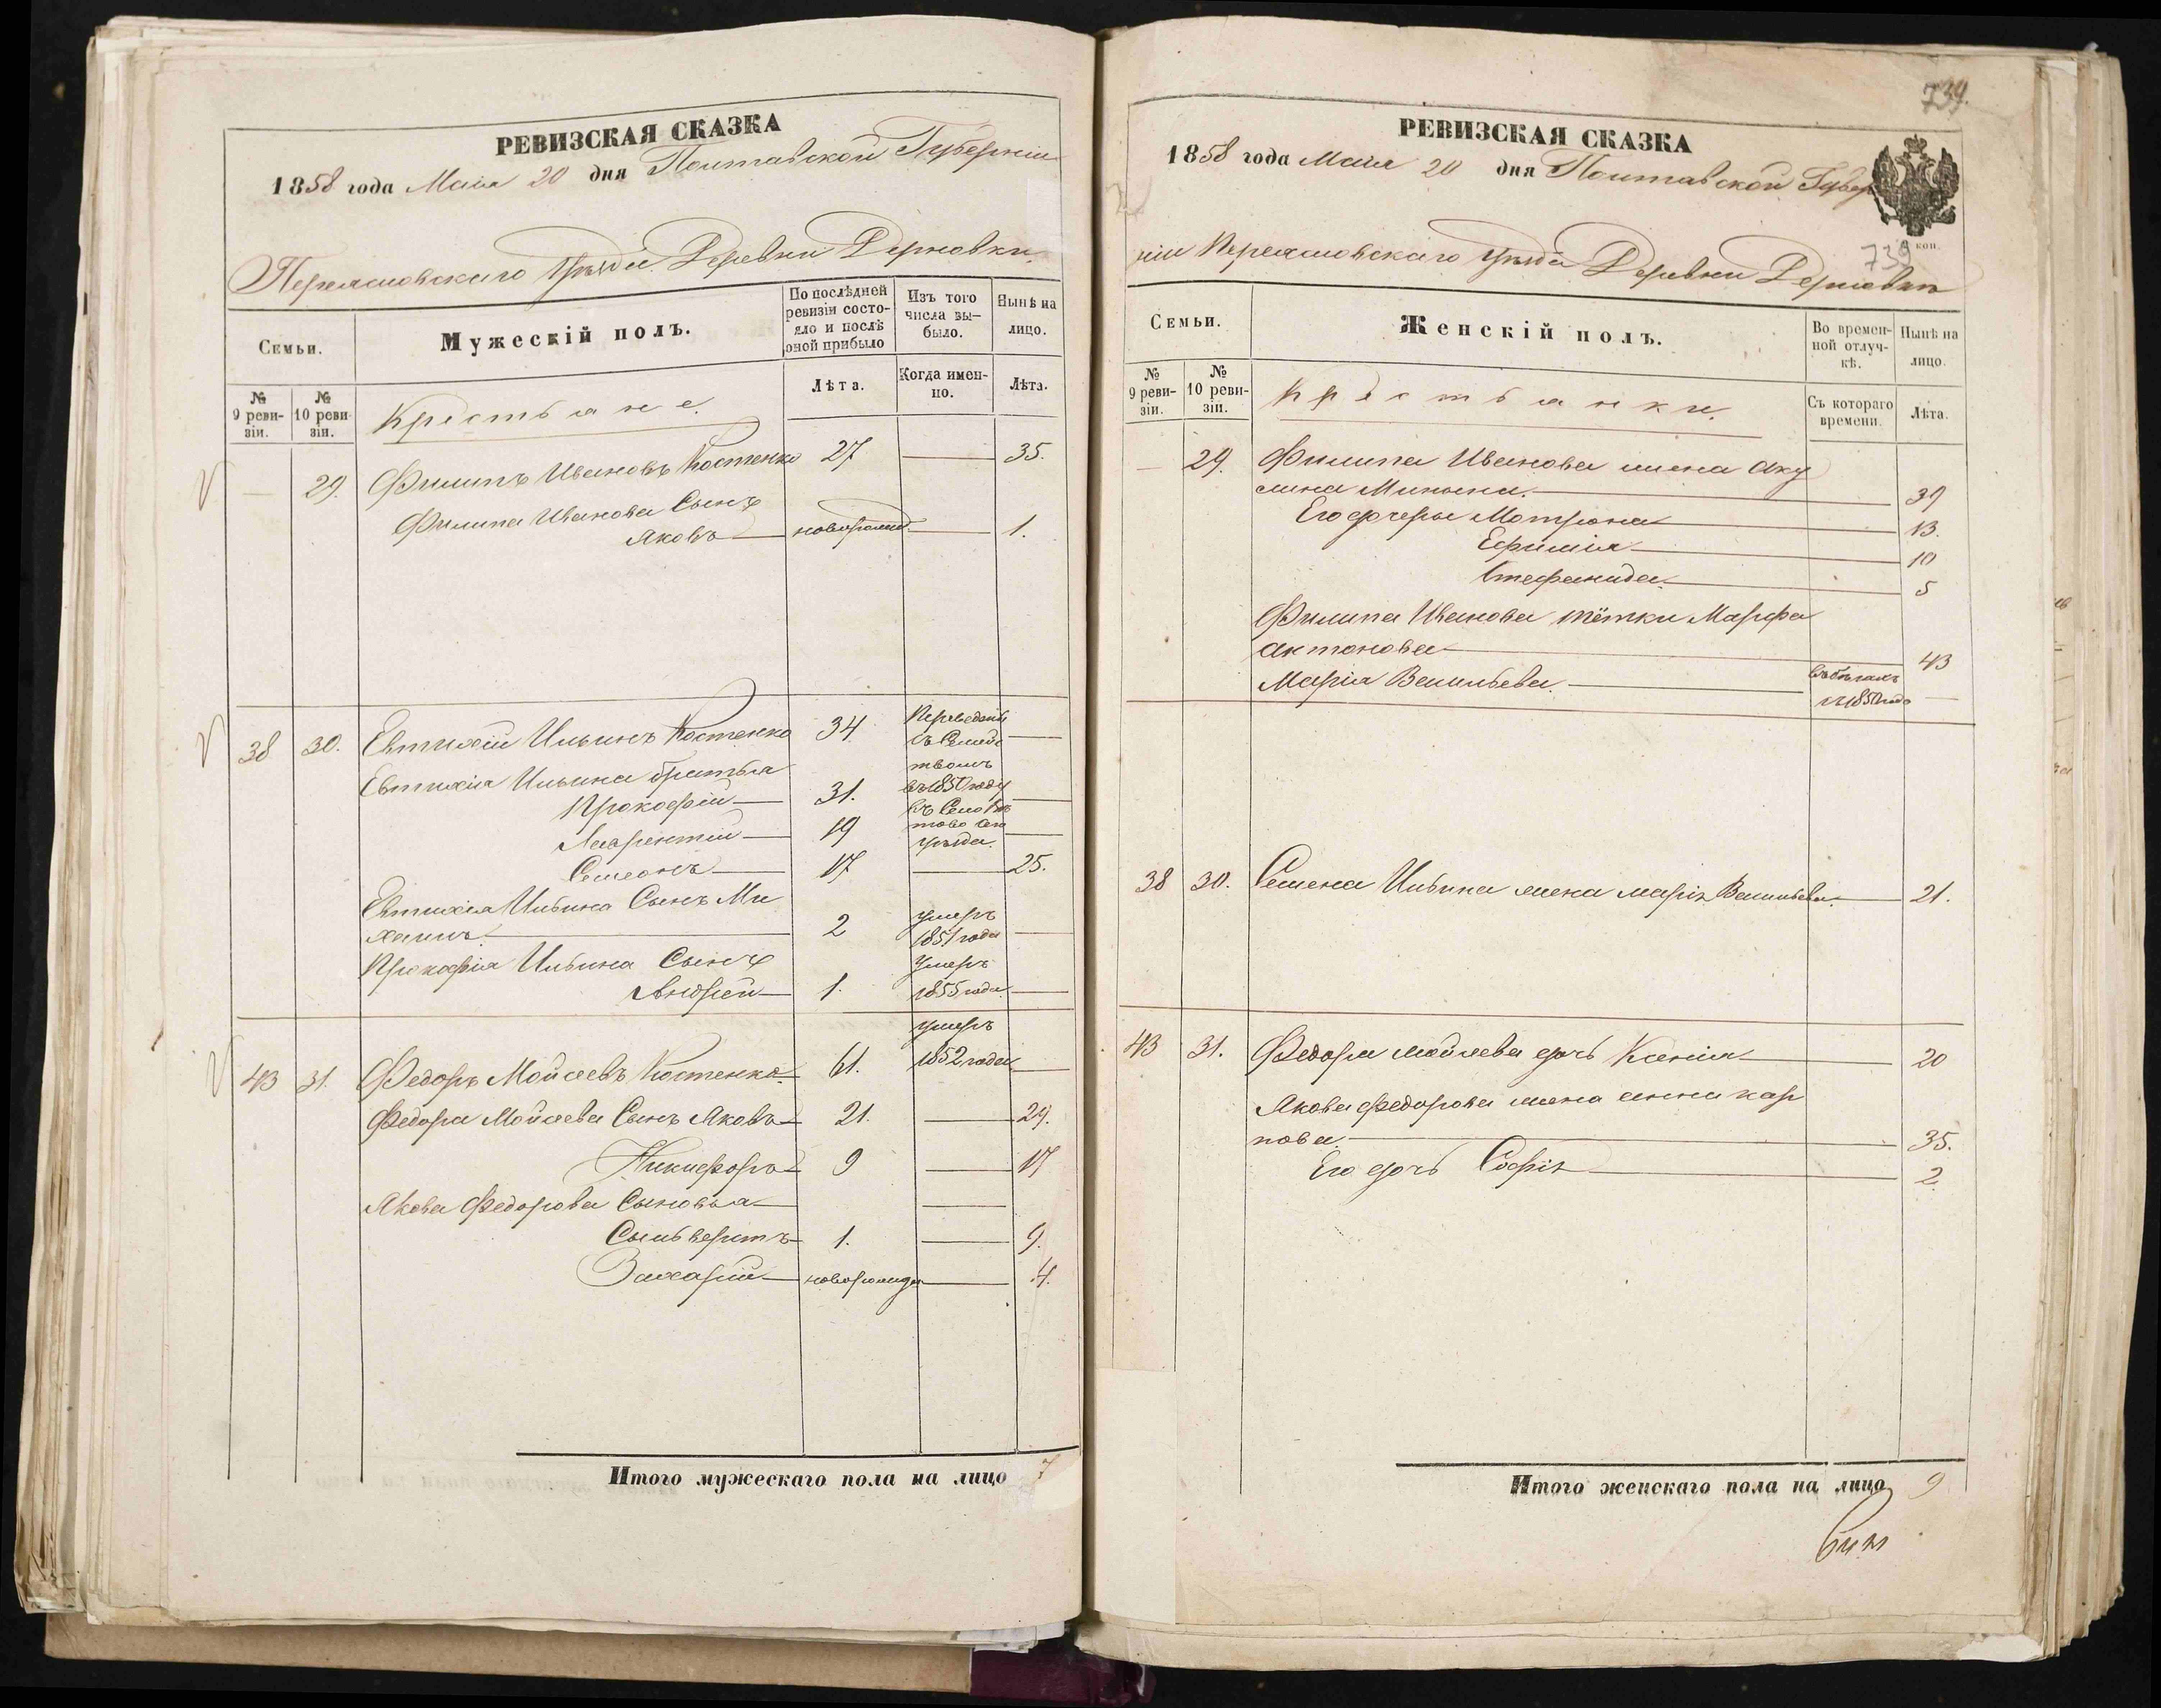 РЕВИЗСКАЯ СКАЗКА
1858 года Маія 20 дня Полтавской Губерніи
Переясловскаго Уѣзда Деревни Дерновки
Семьи.
Мужескій полъ.
По послѣдней ревизіи состояло и послѣ оной прибыло
Изъ того числа выбыло.
Нынѣ на лицо.
№ 9 ревизіи.
№ 10 ревизіи.
Крестьяне.
Лѣта.
Когда именно.
Лѣта.
— 29. Филипъ Ивановъ Костенко 27 — 35.
Филипа Иванова Сынъ
Яковъ — новорожд — 1.
38 30. Евтихій Ильинъ Костенко 34 Переведенъ
съ Семей
ством
Евтихія Ильина братья
въ 1850 году
Прокофій — 31. —
въ Село
Лаврентій — 19 —
уѣзда.
Семеонъ — 17 — 25.
Евтихія Ильина Сынъ Ми
хаилъ — 2 умеръ 1851 года —
Прокофія Ильина Сынъ
Андрей — 1. Умеръ 1855 года —
43 31. Федоръ Мойсеевъ Костенко 61. умеръ 1852 года —
Федора Мойсеева Сынъ Яковъ — 21. — 29.
Никифоръ 9 — 17
Якова Федорова Сыновья — —
Сильверстъ 1. — 9.
Захарій — новорожд — 4.
Итого мужескаго пола на лицо 7
739.
РЕВИЗСКАЯ СКАЗКА
1858 года Маія 20 дня Полтавской Губер
ніи Переясловскаго Уѣзда Деревни Дерновки
739 коп.
Семьи.
Женскій полъ.
Во временной отлучкѣ.
Нынѣ на лицо.
№ 9 ревизіи.
№ 10 ревизіи.
Крестьянки.
Съ котораго времени.
Лѣта.
— 29. Филипа Иванова жена Аку
лина Минына. — 39
Его дочеры Мотрона — 13.
Ефимія — 10
Стефанида — 5
Филипа Иванова тётки Марфа
Антонова — 43
Марія Васильева. — въ бѣгахъ —
съ 1850 года
38 30. Семена Ильина жена Марія Васильева — 21.
43 31. Федора Мойсеева дочь Ксенія — 20
Якова Федорова жена Анна Кар
пова. — 35.
Его дочь Софія — 2.
Итого женскаго пола на лицо 9